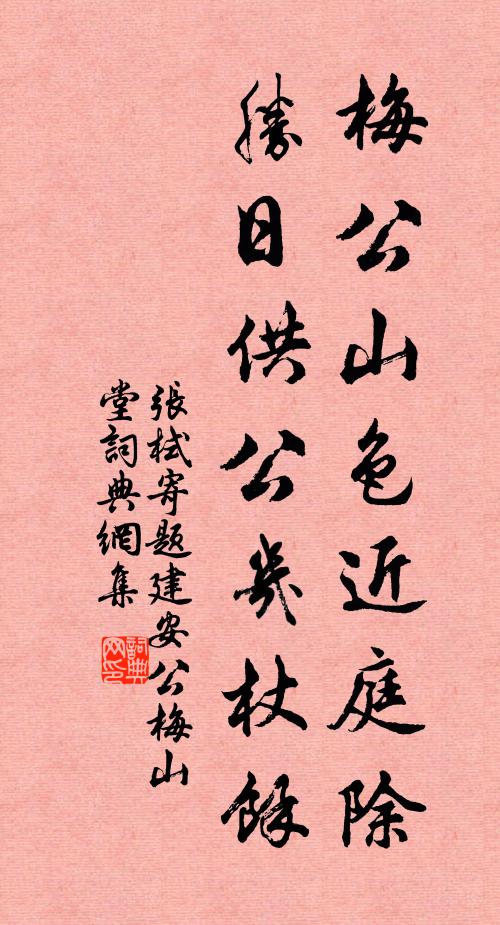 梅公山色近庭除
勝日供公几杖餘
張栻寄題建安公梅山
堂詞典網集
詞典
网印